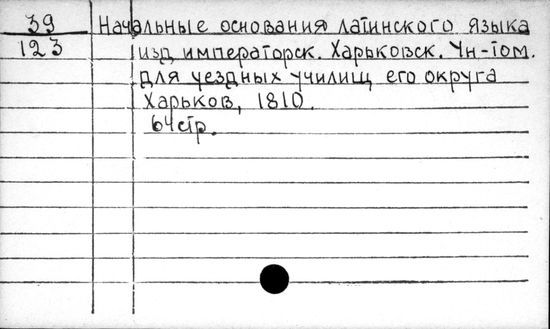 39 Начальные основания латинского языка
123 изд императорск. Харьковск. Ун-том.
для уездных училищ его округа
Харьков, 1810.
64 стр.